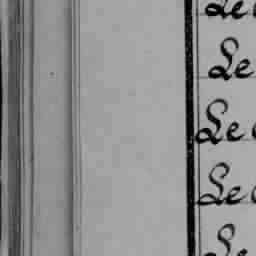 Le
Le
Le
Le
Le